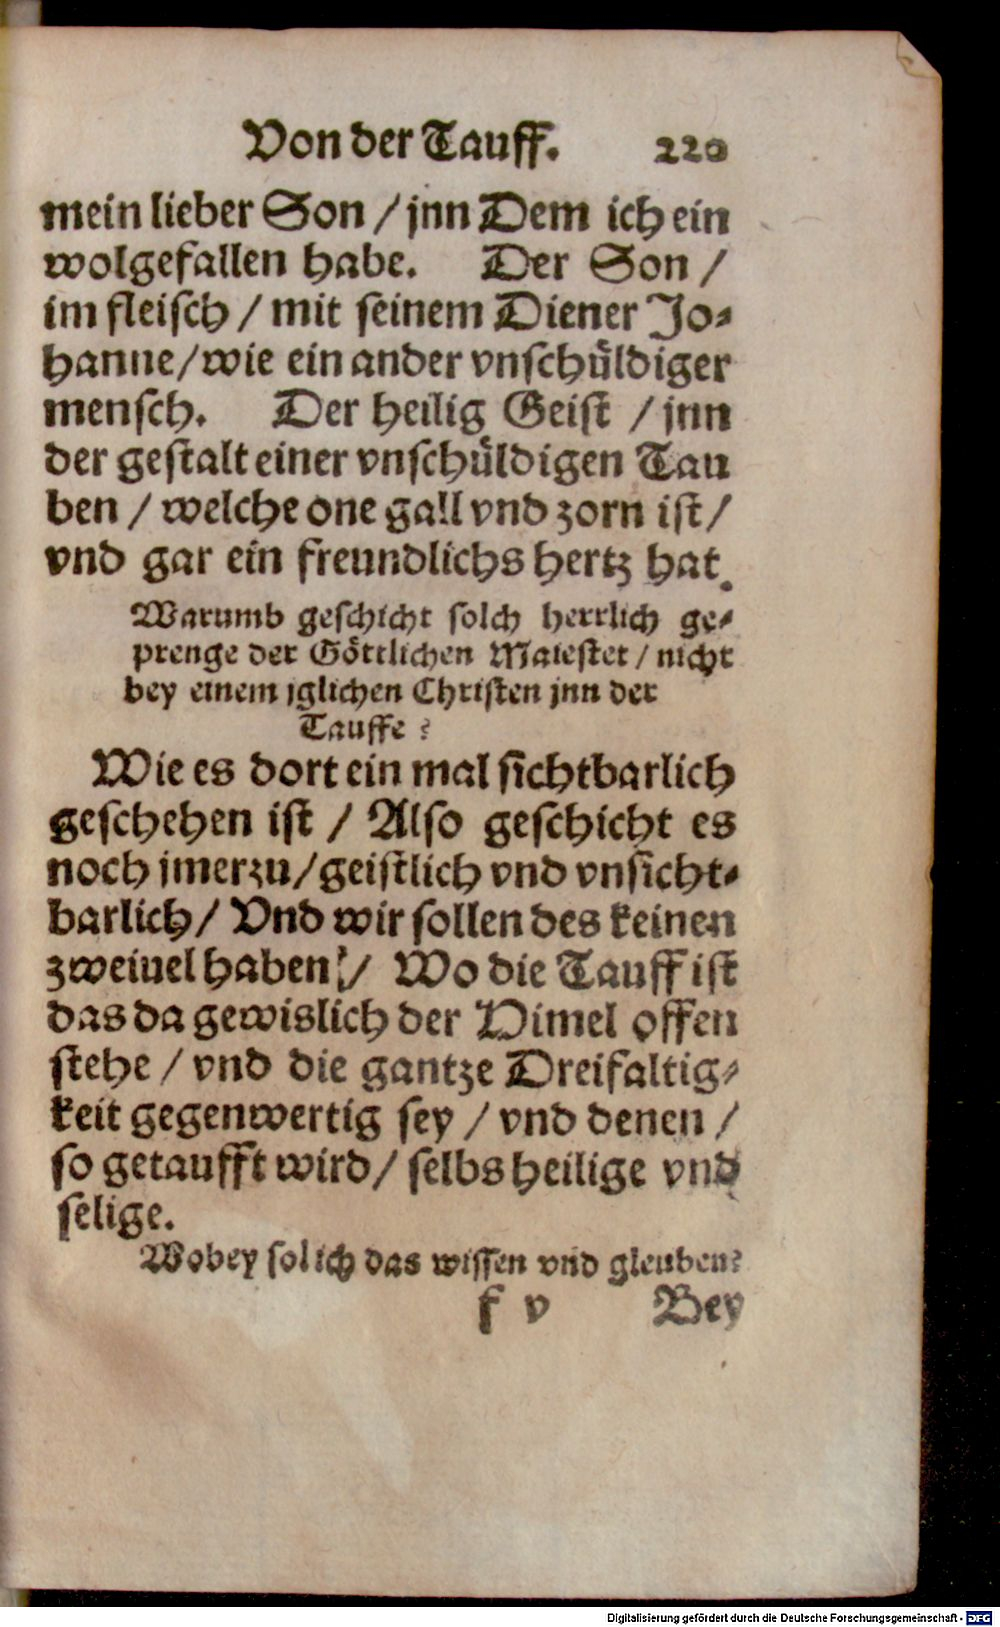 Von der Tauff. 220
mein lieber Son / jnn Dem ich ein
wolgefallen habe. Der Son /
im fleisch / mit seinem Diener Jo-
hanne / wie ein ander vnschuͤldiger
mensch. Der heilig Geist / jnn
der gestalt einer vnschuͤldigen Tau
ben / welche one gall vnd zorn ist /
vnd gar ein freundlichs hertz hat.
Warumb geschicht solch herrlich ge-
prenge der Goͤttlichen Maiestet / nicht
bey einem jglichen Christen jnn der
Tauffe ?
Wie es dort ein mal sichtbarlich
geschehen ist / Also geschicht es
noch jmerzu / geistlich vnd vnsicht-
barlich / Vnd wir sollen des keinen
zweiuel haben / Wo die Tauff ist
das da gewislich der Himel offen
stehe / vnd die gantze Dreifaltig-
keit gegenwertig sey / vnd denen /
so getaufft wird / selbs heilige vnd
selige.
Wobey sol ich das wissen vnd gleuben?
f v Bey
Digitalisierung gefördert durch die Deutsche Forschungsgemeinschaft - DFG